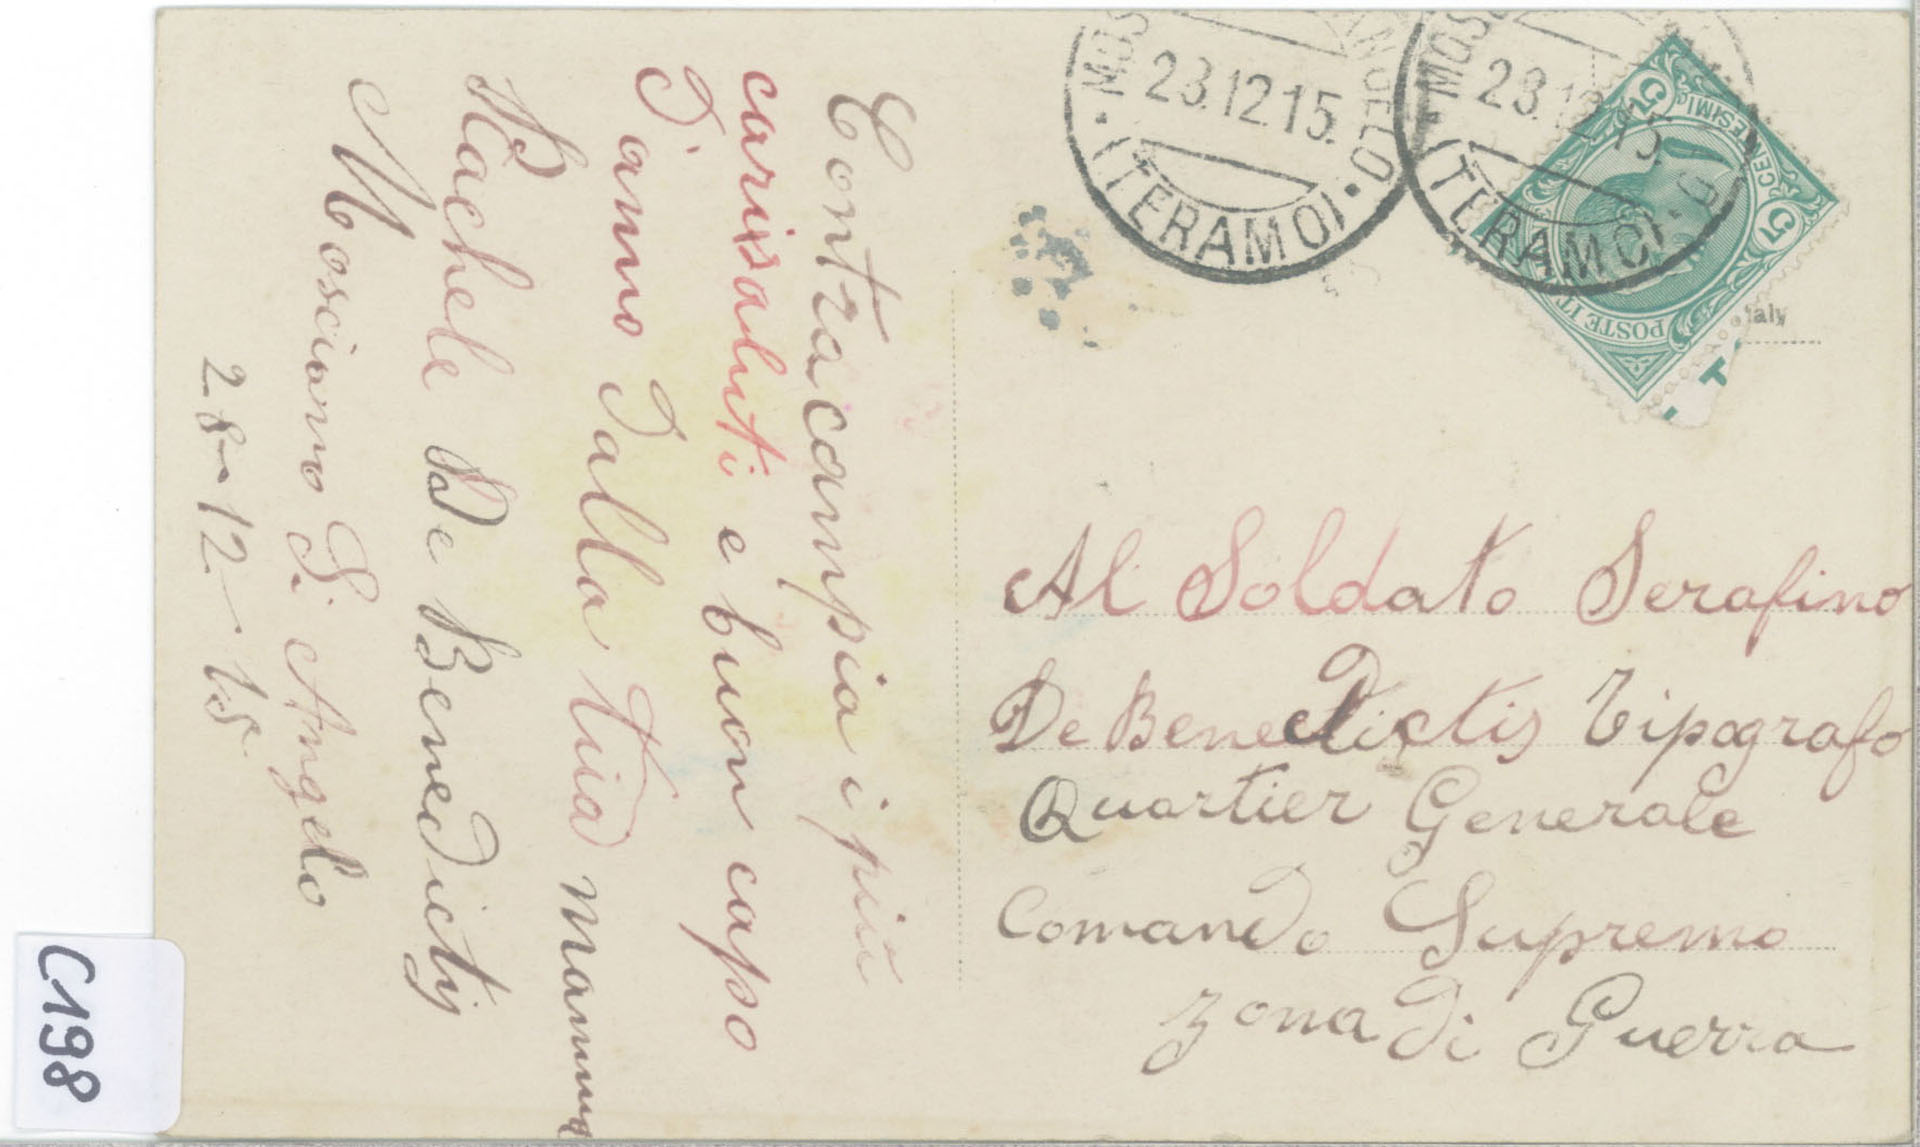 Contracampia i più
carissaluti e buon capo
d'anno dalla tua mamma
Rachele De Benedictis
Mosciano S. Angelo
28-12-15
Al Soldato Serafino
De Benedictis Tipografo
Quartier Generale
Comando Supremo
Zona di Guerra
28.12.15.
(TERAMO)
28.12.15.
(TERAMO)
POSTE IT
5 CENTESIMI 5
taly
C198